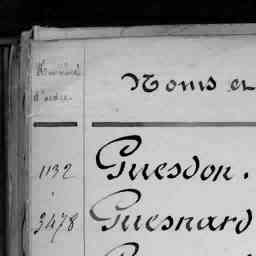 Numéros
d'ordre.
Noms et
1132 Guesdon.
3478 Guesnard